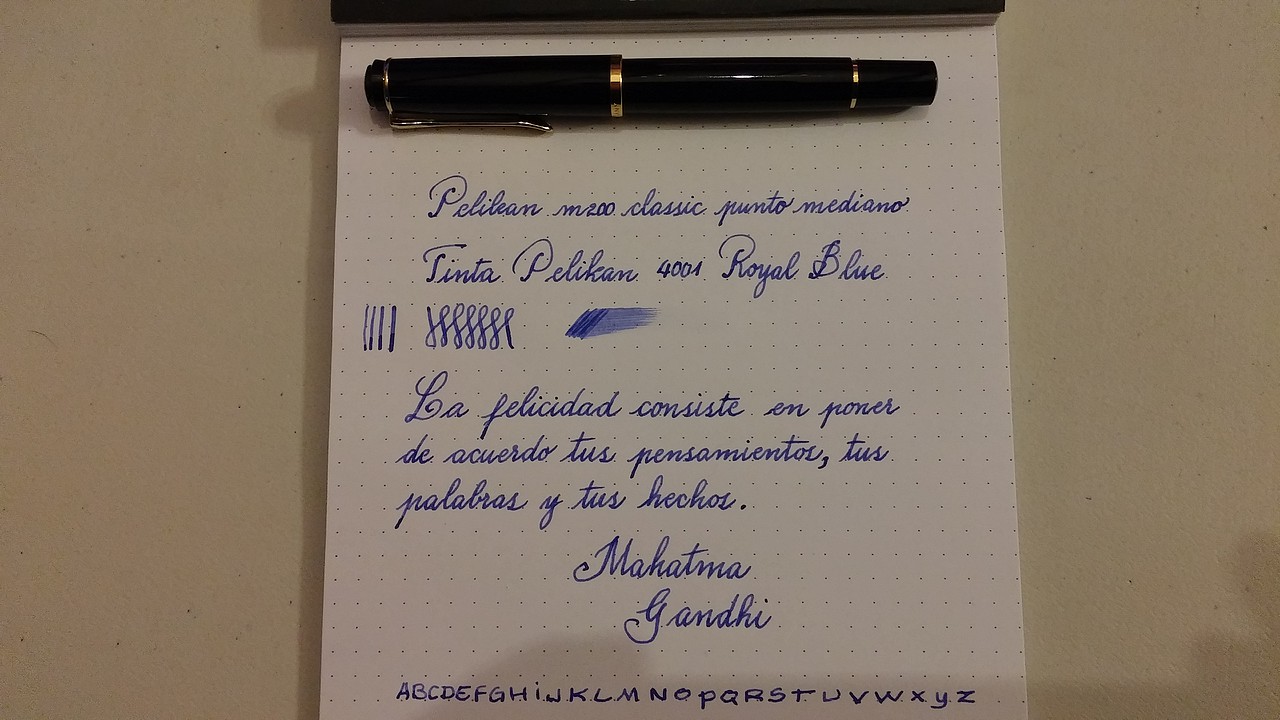 Pelikan m200 classic punto mediano
Tinta Pelikan 4001 Royal Blue
La felicidad consiste en poner
de acuerdo tus pensamientos, tus
palabras y tus hechos.
Mahatma
Gandhi
ABCDEFGHiJKLMNOPQRSTUVWXYZ